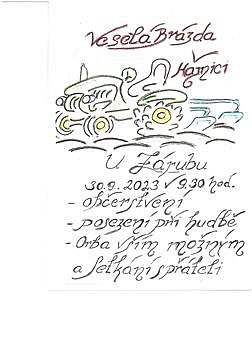 Veselá Brázda
v
Hájnici
U Zárubu
30.9.2023 v 9,30 hod.
- občerstvení
- posezení při hudbě
- Orba vším možným
a setkání s přáteli